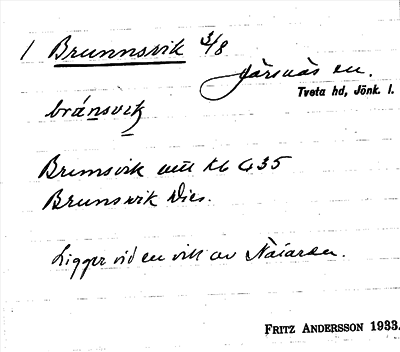 1 Brunnsvik 3/8
Järsnäs sn.
Tveta hd, Jönk. l.
bránsvik
Brunsvik uttt kb 435
Brunsvik Dies.
Ligger vid en vik av Näiaren.
FRITZ ANDERSSON 1933.